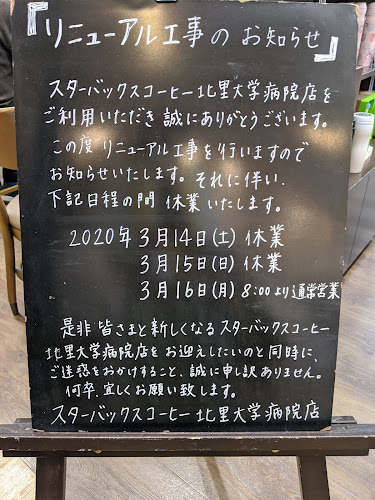 『リニューアル工事の お知らせ』
スターバックスコーヒー北里大学病院店を
ご利用いただき誠にありがとうございます。
この度 リニューアル工事を行いますので
お知らせいたします。それに伴い、
下記日程の間 休業いたします。
2020年3月14日(土) 休業
3月15日(日) 休業
3月16日(月) 8:00より通常営業
是非 皆さまと新しくなる スターバックスコーヒー
北里大学病院店をお迎えしたいのと同時に、
ご迷惑をおかけすること、誠に申し訳ありません。
何卒、宜しくお願い致します。
スターバックスコーヒー 北里大学病院店